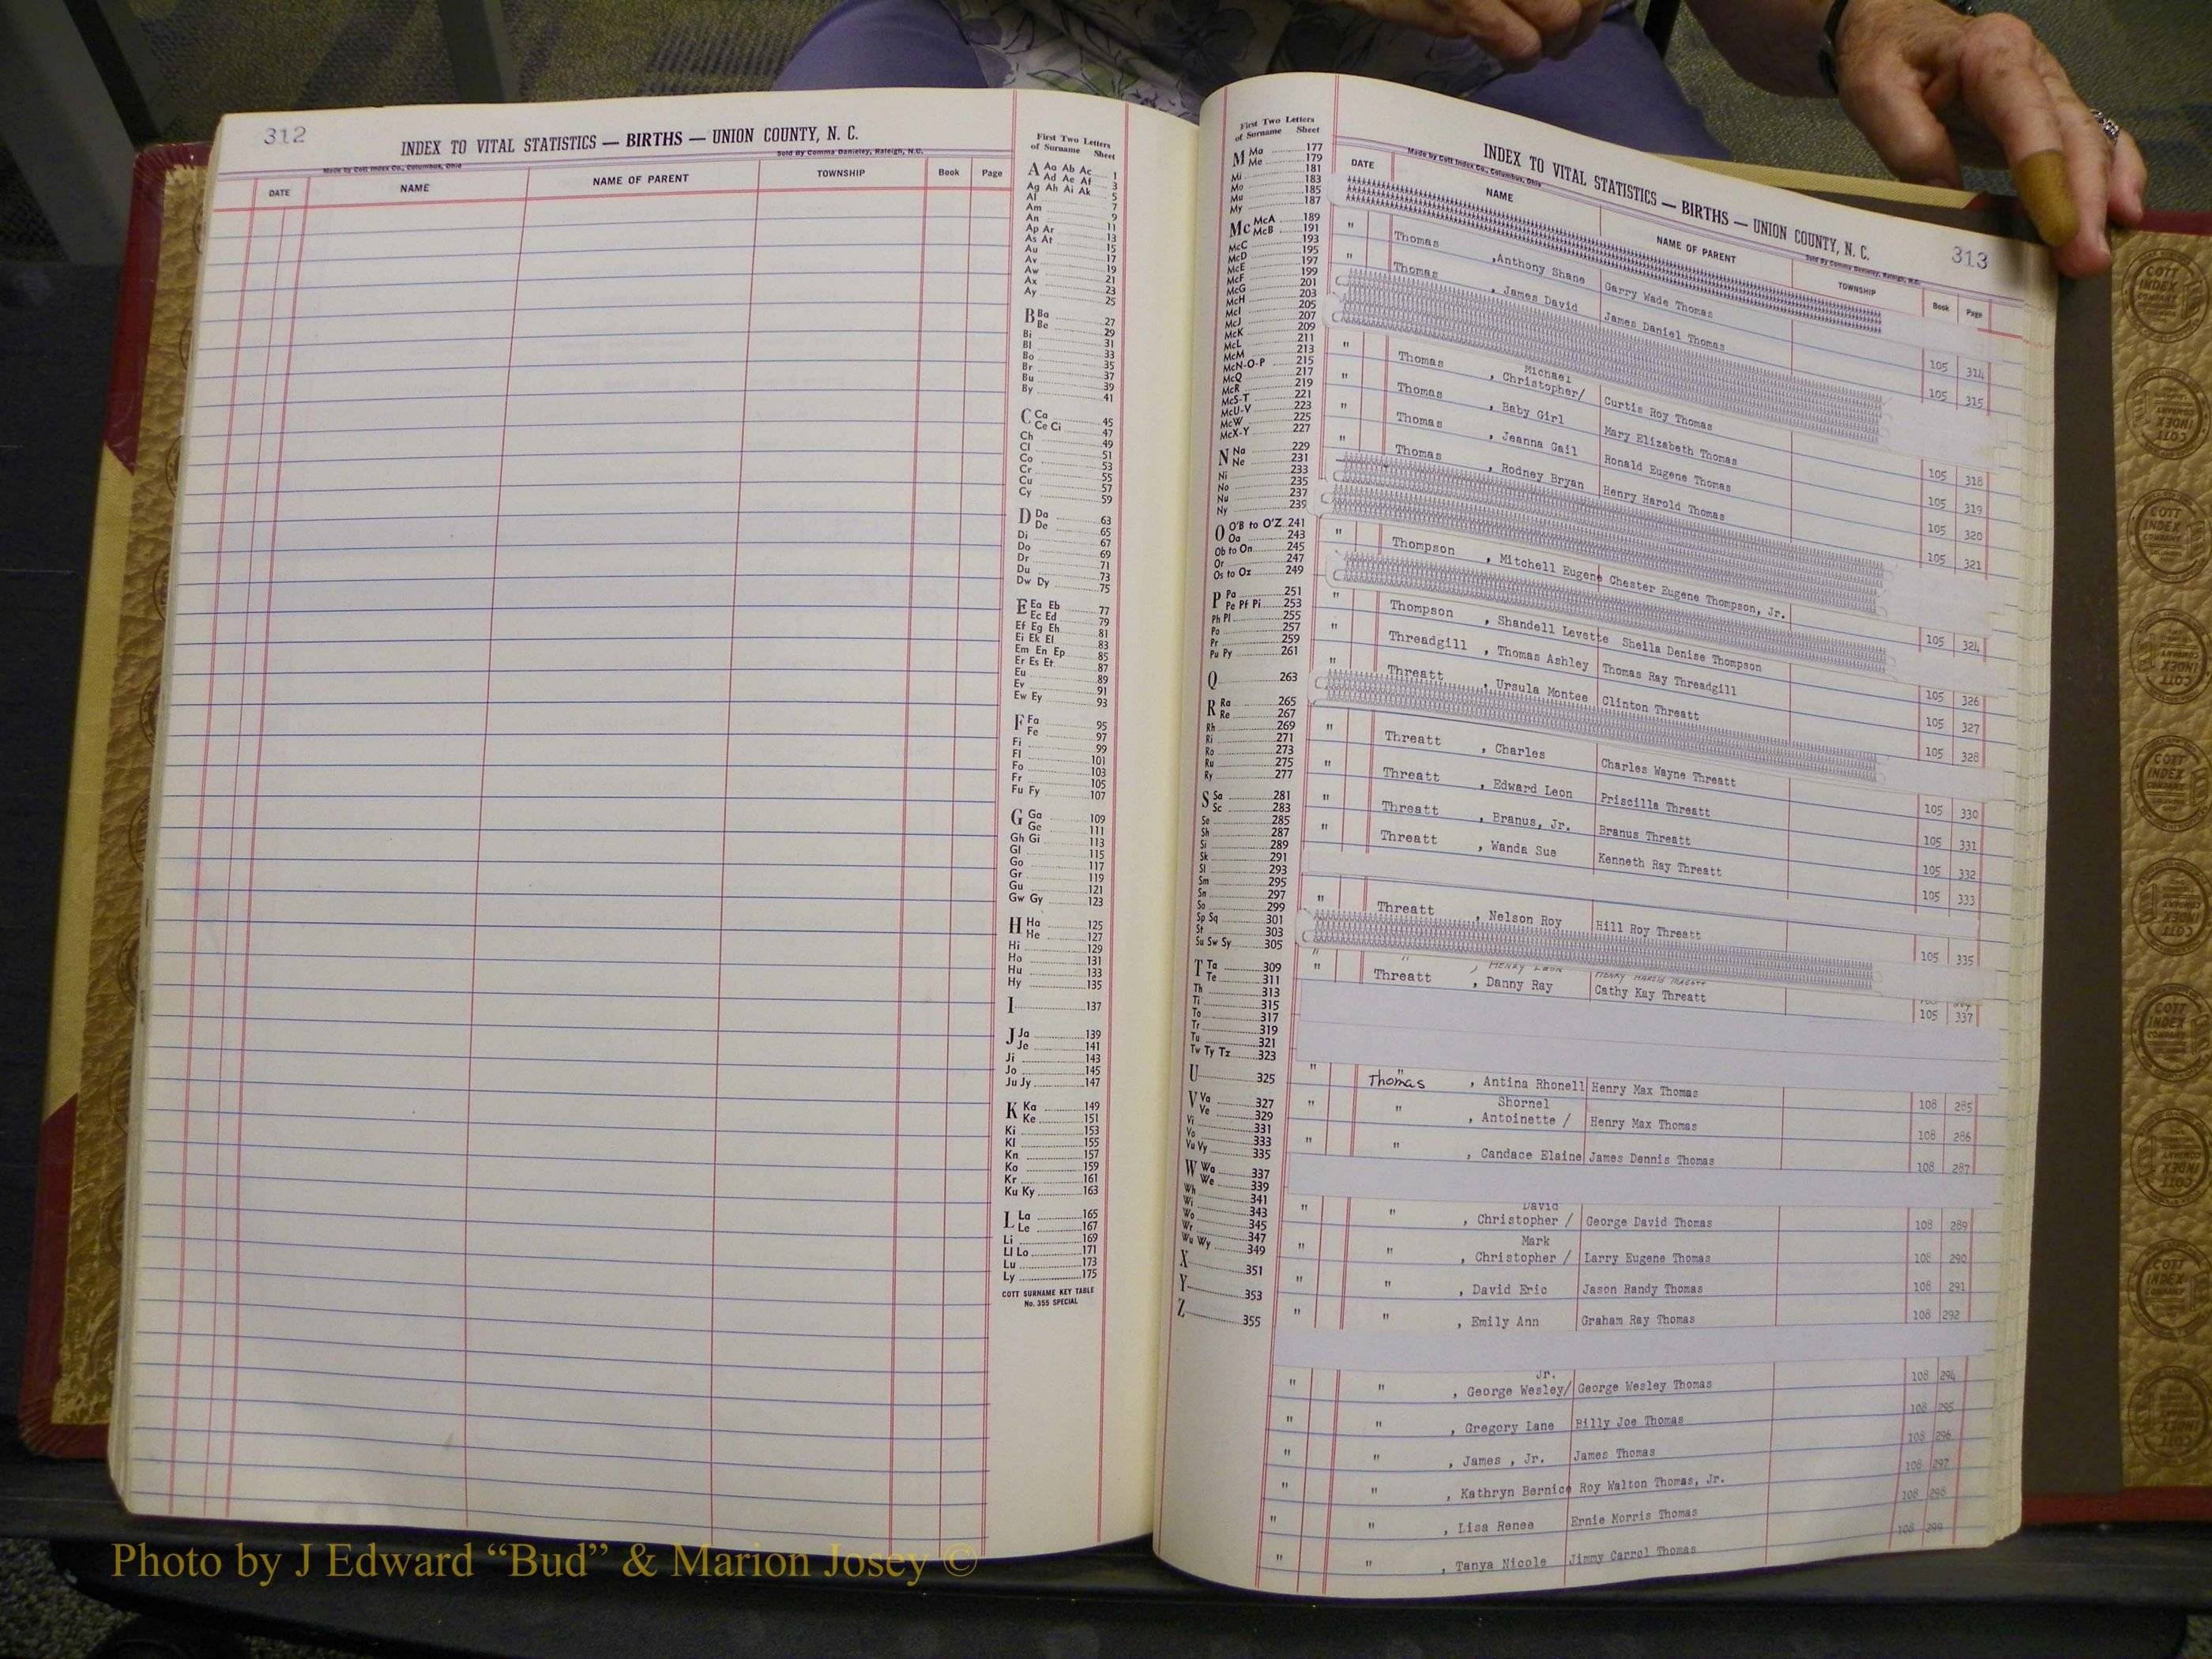 312
INDEX TO VITAL STATISTICS — BIRTHS — UNION COUNTY, N. C.
Made by Cott Index Co., Columbus, Ohio Sold By Comma Danieley, Raleigh, N.C.
DATE NAME NAME OF PARENT TOWNSHIP Book Page
First Two Letters
of Surname Sheet
A Aa Ab Ac 1
Ad Ae Af 3
Ag Ah Ai Ak 5
Al 7
Am 9
An 11
Ap Ar 13
As At 15
Au 17
Av 19
Aw 21
Ax 23
Ay 25
B Ba 27
Be 29
Bi 31
Bl 33
Bo 35
Br 37
Bu 39
By 41
C Ca 45
Ce Ci 47
Ch 49
Cl 51
Co 53
Cr 55
Cu 57
Cy 59
D Da 63
De 65
Di 67
Do 69
Dr 71
Du 73
Dw Dy 75
E Ea Eb 77
Ec Ed 79
Ef Eg Eh 81
Ei Ek El 83
Em En Ep 85
Er Es Et 87
Eu 89
Ev 91
Ew Ey 93
F Fa 95
Fe 97
Fi 99
Fl 101
Fo 103
Fr 105
Fu Fy 107
G Ga 109
Ge 111
Gh Gi 113
Gl 115
Go 117
Gr 119
Gu 121
Gw Gy 123
H Ha 125
He 127
Hi 129
Ho 131
Hu 133
Hy 135
I 137
J Ja 139
Je 141
Ji 143
Jo 145
Ju Jy 147
K Ka 149
Ke 151
Ki 153
Kl 155
Kn 157
Ko 159
Kr 161
Ku Ky 163
L La 165
Le 167
Li 169
Ll Lo 171
Lu 173
Ly 175
COTT SURNAME KEY TABLE
No. 355 SPECIAL
First Two Letters
of Surname Sheet
M Ma 177
Me 179
Mi 181
Mo 183
Mu 185
My 187
Mc McA 189
McB 191
McC 193
McD 195
McE 197
McF 199
McG 201
McH 203
McI 205
McJ 207
McK 209
McL 211
McM 213
McN-O-P 215
McQ 217
McR 219
McS-T 221
McU-V 223
McW 225
McX-Y 227
N Na 229
Ne 231
Ni 233
No 235
Nu 237
Ny 239
O O'B to O'Z 241
Oa 243
Ob to On 245
Or 247
Os to Oz 249
P Pa 251
Pe Pf Pi 253
Ph Pl 255
Po 257
Pr 259
Pu Py 261
Q 263
R Ra 265
Re 267
Rh 269
Ri 271
Ro 273
Ru 275
Ry 277
S Sa 281
Sc 283
Se 285
Sh 287
Si 289
Sk 291
Sl 293
Sm 295
Sn 297
So 299
Sp Sq 301
St 303
Su Sw Sy 305
T Ta 309
Te 311
Th 313
Ti 315
To 317
Tr 319
Tu 321
Tw Ty Tz 323
U 325
V Va 327
Ve 329
Vi 331
Vo 333
Vu Vy 335
W Wa 337
We 339
Wh 341
Wi 343
Wo 345
Wr 347
Wu Wy 349
X 351
Y 353
Z 355
INDEX TO VITAL STATISTICS — BIRTHS — UNION COUNTY, N. C.
313
Made by Cott Index Co., Columbus, Ohio Sold By Comma Danieley, Raleigh, N.C.
DATE NAME NAME OF PARENT TOWNSHIP Book Page
" Thomas , Anthony Shane Garry Wade Thomas 105 314
" Thomas , James David James Daniel Thomas 105 315
Michael
" Thomas , Christopher/ Curtis Roy Thomas 105 318
" Thomas , Baby Girl Mary Elizabeth Thomas 105 319
" Thomas , Jeanna Gail Ronald Eugene Thomas 105 320
" Thomas , Rodney Bryan Henry Harold Thomas 105 321
" Thompson , Mitchell Eugene Chester Eugene Thompson, Jr. 105 324
" Thompson , Shandell Levette Sheila Denise Thompson 105 326
" Threadgill , Thomas Ashley Thomas Ray Threadgill 105 327
" Threatt , Ursula Montee Clinton Threatt 105 328
" Threatt , Charles Charles Wayne Threatt 105 330
" Threatt , Edward Leon Priscilla Threatt 105 331
" Threatt , Branus, Jr. Branus Threatt 105 332
" Threatt , Wanda Sue Kenneth Ray Threatt 105 333
" Threatt , Nelson Roy Hill Roy Threatt 105 335
" " , Henry Leon
" Threatt , Danny Ray Cathy Kay Threatt 105 337
" Thomas , Antina Rhonell Henry Max Thomas 108 285
Shornel
" " , Antoinette / Henry Max Thomas 108 286
" " , Candace Elaine James Dennis Thomas 108 287
David
" " , Christopher / George David Thomas 108 289
Mark
" " , Christopher / Larry Eugene Thomas 108 290
" " , David Eric Jason Randy Thomas 108 291
" " , Emily Ann Graham Ray Thomas 108 292
Jr.
" " , George Wesley/ George Wesley Thomas 108 294
" " , Gregory Lane Billy Joe Thomas 108 295
" " , James , Jr. James Thomas 108 296
" " , Kathryn Bernice Roy Walton Thomas, Jr. 108 297
" " , Lisa Renee Ernie Morris Thomas 108 298
" " , Tanya Nicole Jimmy Carrol Thomas 108 299
COTT INDEX COMPANY
Photo by J Edward “Bud” & Marion Josey ©